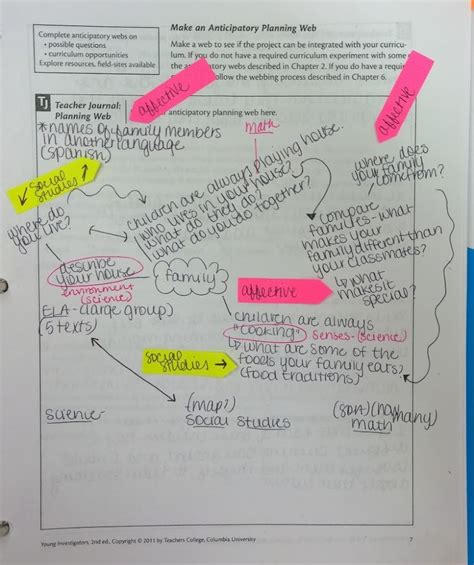 Complete anticipatory webs on
• possible questions
• curriculum opportunities
Explore resources, field-sites available
Make an Anticipatory Planning Web
Make a web to see if the project can be integrated with your curricu-
lum. If you do not have a required curriculum experiment with some
the anticipatory webs described in Chapter 2. If you do have a requir
follow the webbing process described in Chapter 6.
TJ
Teacher Journal:
Planning Web
anticipatory planning web here.
affective
affective
*names of family members
in another language
(spanish)
math
social
studies
where do
you live?
children are always playing house.
who lives in your house?
what do they do?
what do you do together?
where does
your family
come from?
compare
families - what
makes your
family different than
your classmates?
what
makes it
special?
describe
your house
environment
(science)
family
affective
ELA - (large group)
(5 texts)
children are always
"cooking" senses - (science)
what are some of the
foods your family eats?
(food traditions)
social
studies →
science
(map?)
social studies
(how many)
math
Young Investigators, 2nd ed., Copyright © 2011 by Teachers College, Columbia University
7